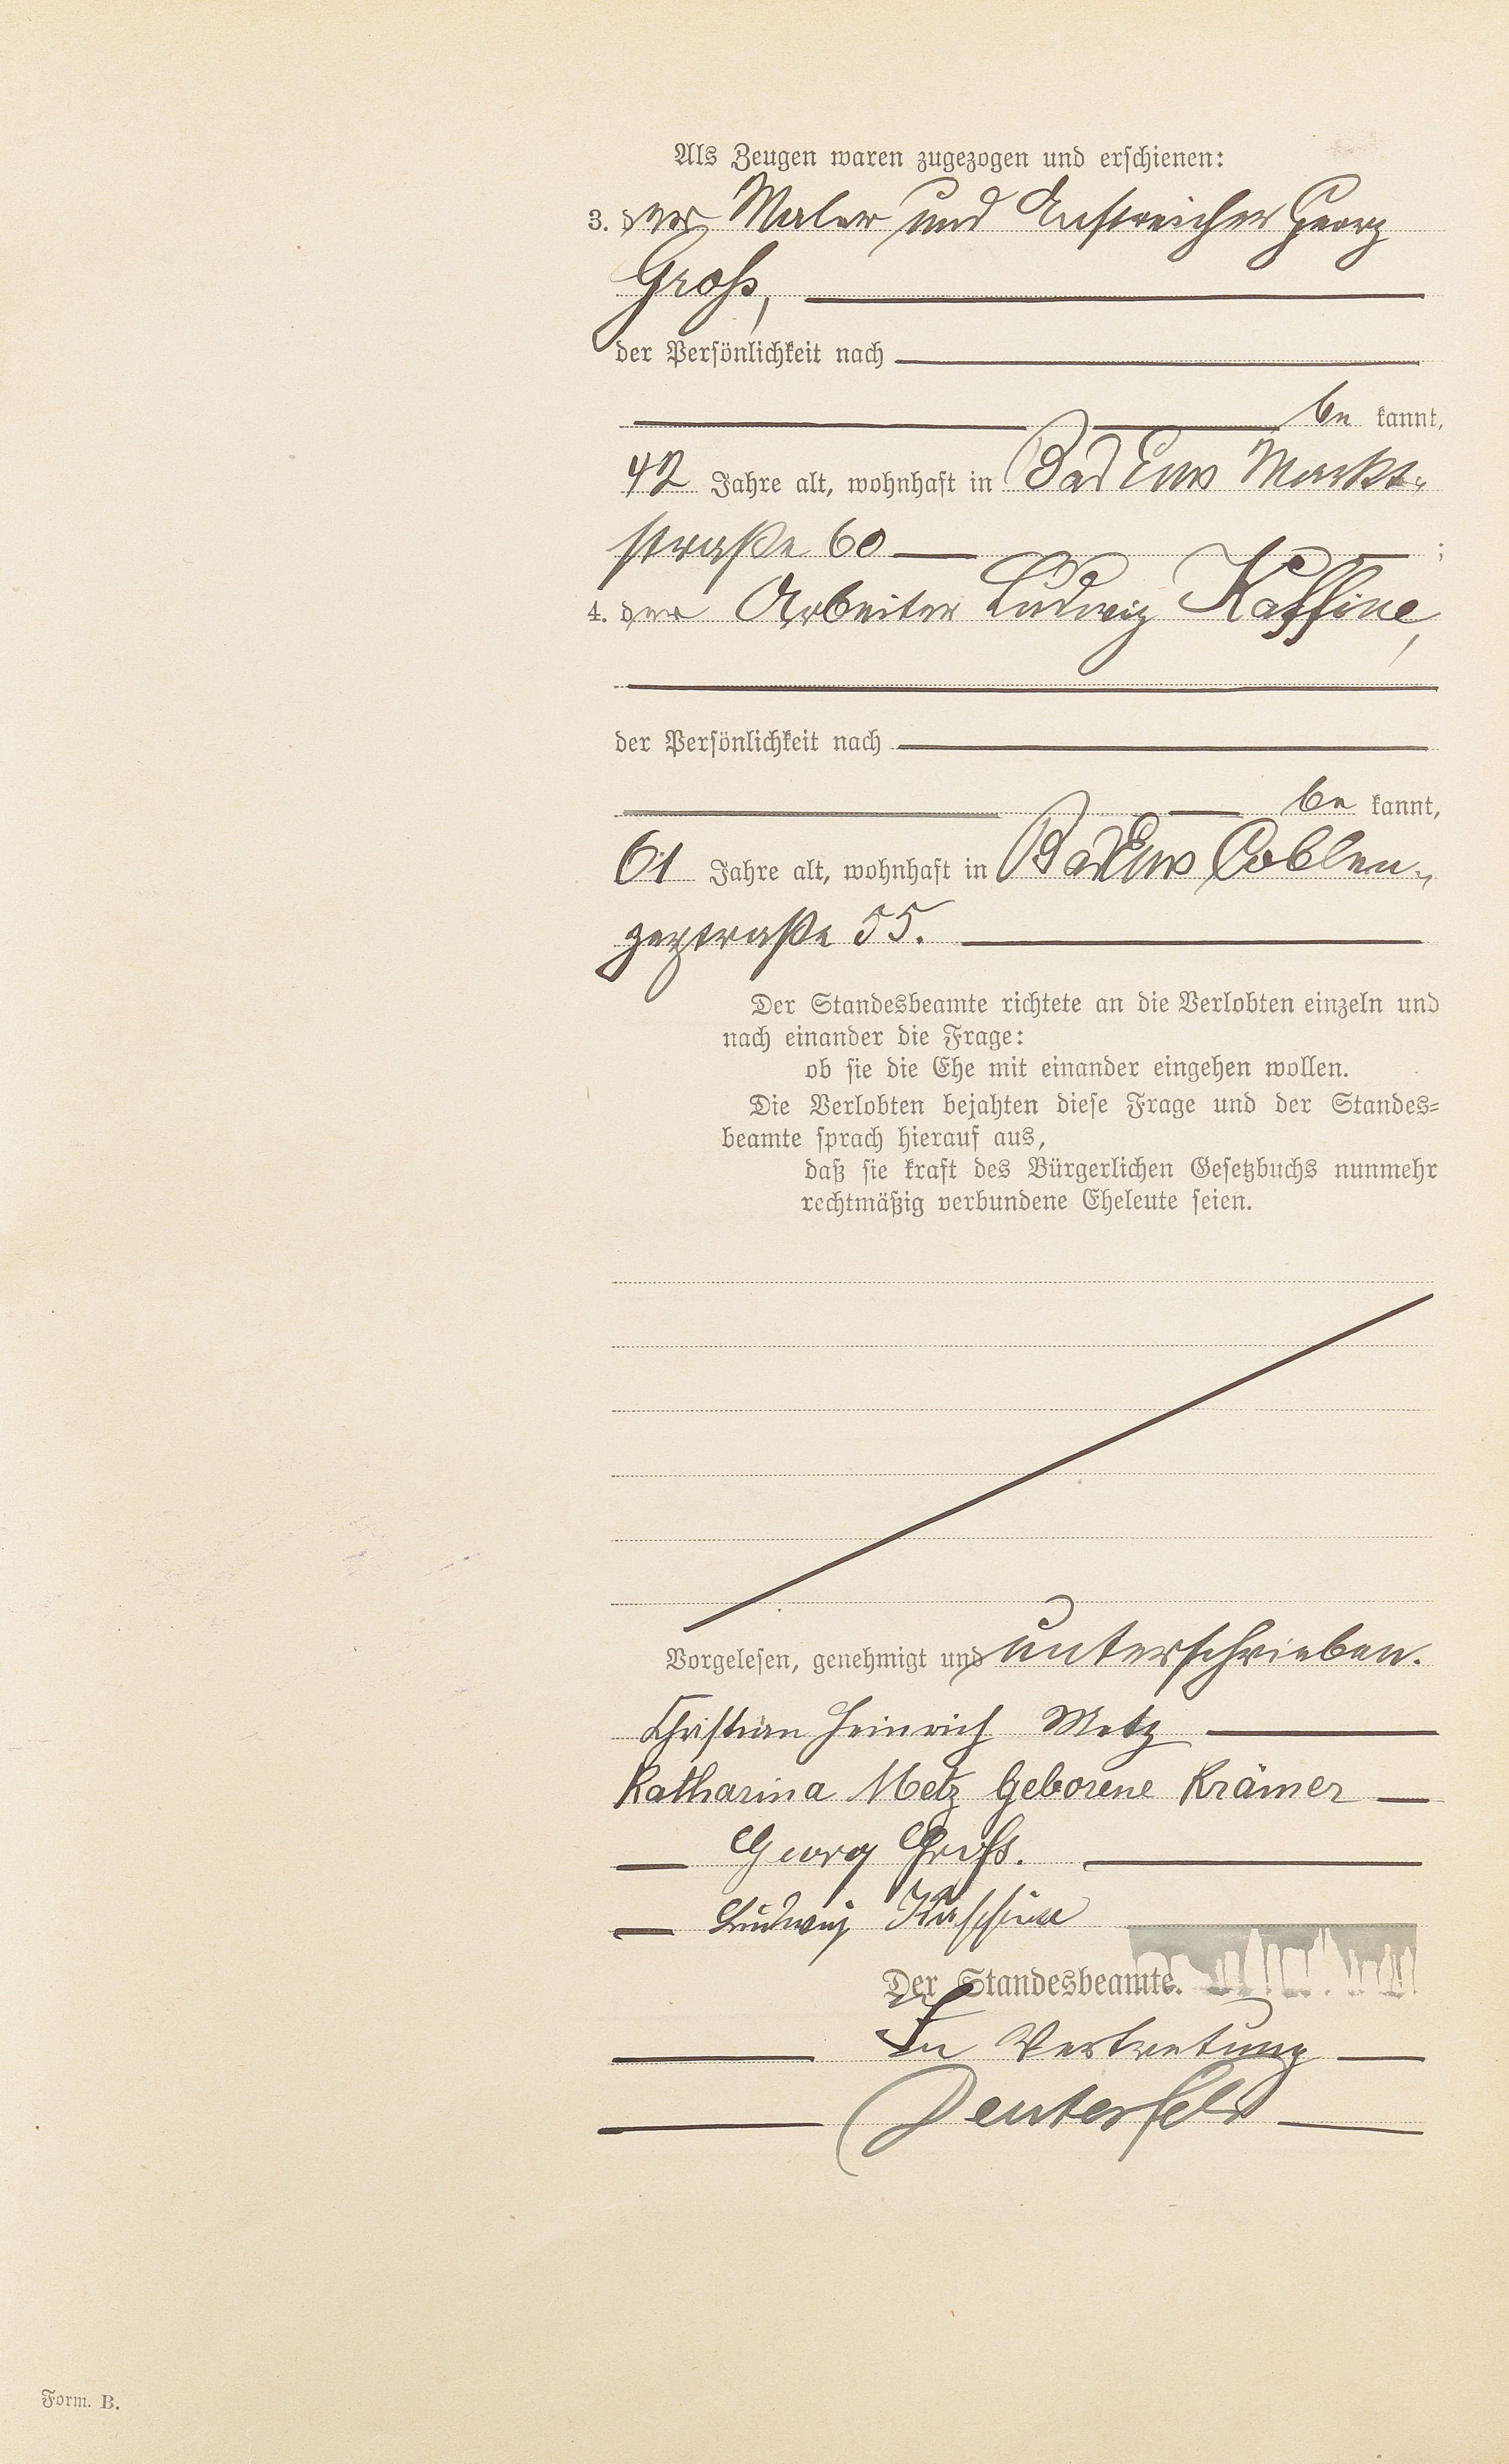 Als Zeugen waren zugezogen und erschienen:
3. der Maler und Anstreicher Georg
Groß,
der Persönlichkeit nach
be kannt,
42 Jahre alt, wohnhaft in Bad Ems Markt-
straße 60 ;
4. der Arbeiter Ludwig Kaffine,
der Persönlichkeit nach
be kannt,
61 Jahre alt, wohnhaft in Bad Ems Coblen-
zerstraße 55.
Der Standesbeamte richtete an die Verlobten einzeln und
nach einander die Frage:
ob sie die Ehe mit einander eingehen wollen.
Die Verlobten bejahten diese Frage und der Standes-
beamte sprach hierauf aus,
daß sie kraft des Bürgerlichen Gesetzbuchs nunmehr
rechtmäßig verbundene Eheleute seien.
Vorgelesen, genehmigt und unterschrieben.
Christian Heinrich Metz
Katharina Metz geborene Krämer
Georg Groß.
Ludwig Kaffine
Der Standesbeamte.
In Vertretung
Deuterfeld
Form. B.